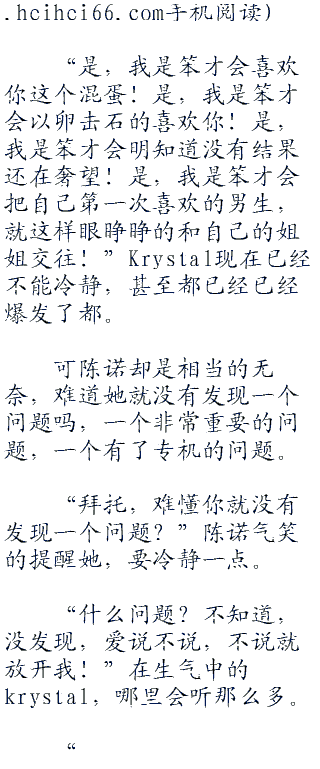 .hcihci66.com手机阅读)
“是，我是笨才会喜欢
你这个混蛋！是，我是笨才
会以卵击石的喜欢你！是，
我是笨才会明知道没有结果
还在奢望！是，我是笨才会
把自己第一次喜欢的男生，
就这样眼睁睁的和自己的姐
姐交往！”Krystal现在已经
不能冷静，甚至都已经已经
爆发了都。
可陈诺却是相当的无
奈，难道她就没有发现一个
问题吗，一个非常重要的问
题，一个有了专机的问题。
“拜托，难懂你就没有
发现一个问题？”陈诺气笑
的提醒她，要冷静一点。
“什么问题？不知道，
没发现，爱说不说，不说就
放开我！”在生气中的
krystal，哪里会听那么多。
“